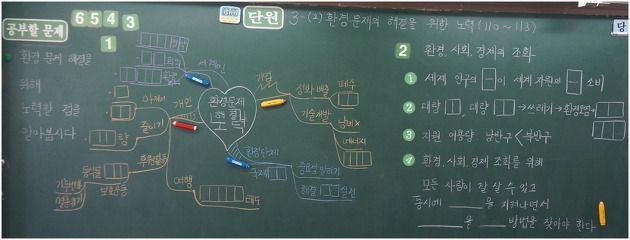 공부할 문제
6 5 4 3
1
단원
3-(2) 환경문제의 해결을 위한 노력 (110~113)
환경 문제 해결을
위해
노력할 점을
알아봅시다
세계인
환경문제
해결
노력
개인
아껴쓰기
줄이기
량
후원활동
동식물
보호운동
여행
태도
기업
폐수
기술개발
에너지
환경단체
국제
중요성 알리기
해결
실천
2 환경, 사회, 경제의 조화
1 세계 인구의 - 이 세계 자원의 - 소비
2 대량 , 대량 → 쓰레기 → 환경오염
3 자원 이용량 남반구 < 북반구
4 환경, 사회, 경제 조화를 위해
모든 사람이 잘 살 수 있고
동시에 ____을 지켜나면서
____을 ____ 방법을 찾아야 한다